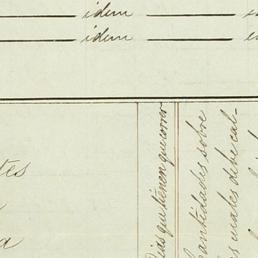 idem
idem
tes
a
Dias que tienen que correr
Cantidades sobre
las cuales debe cal-